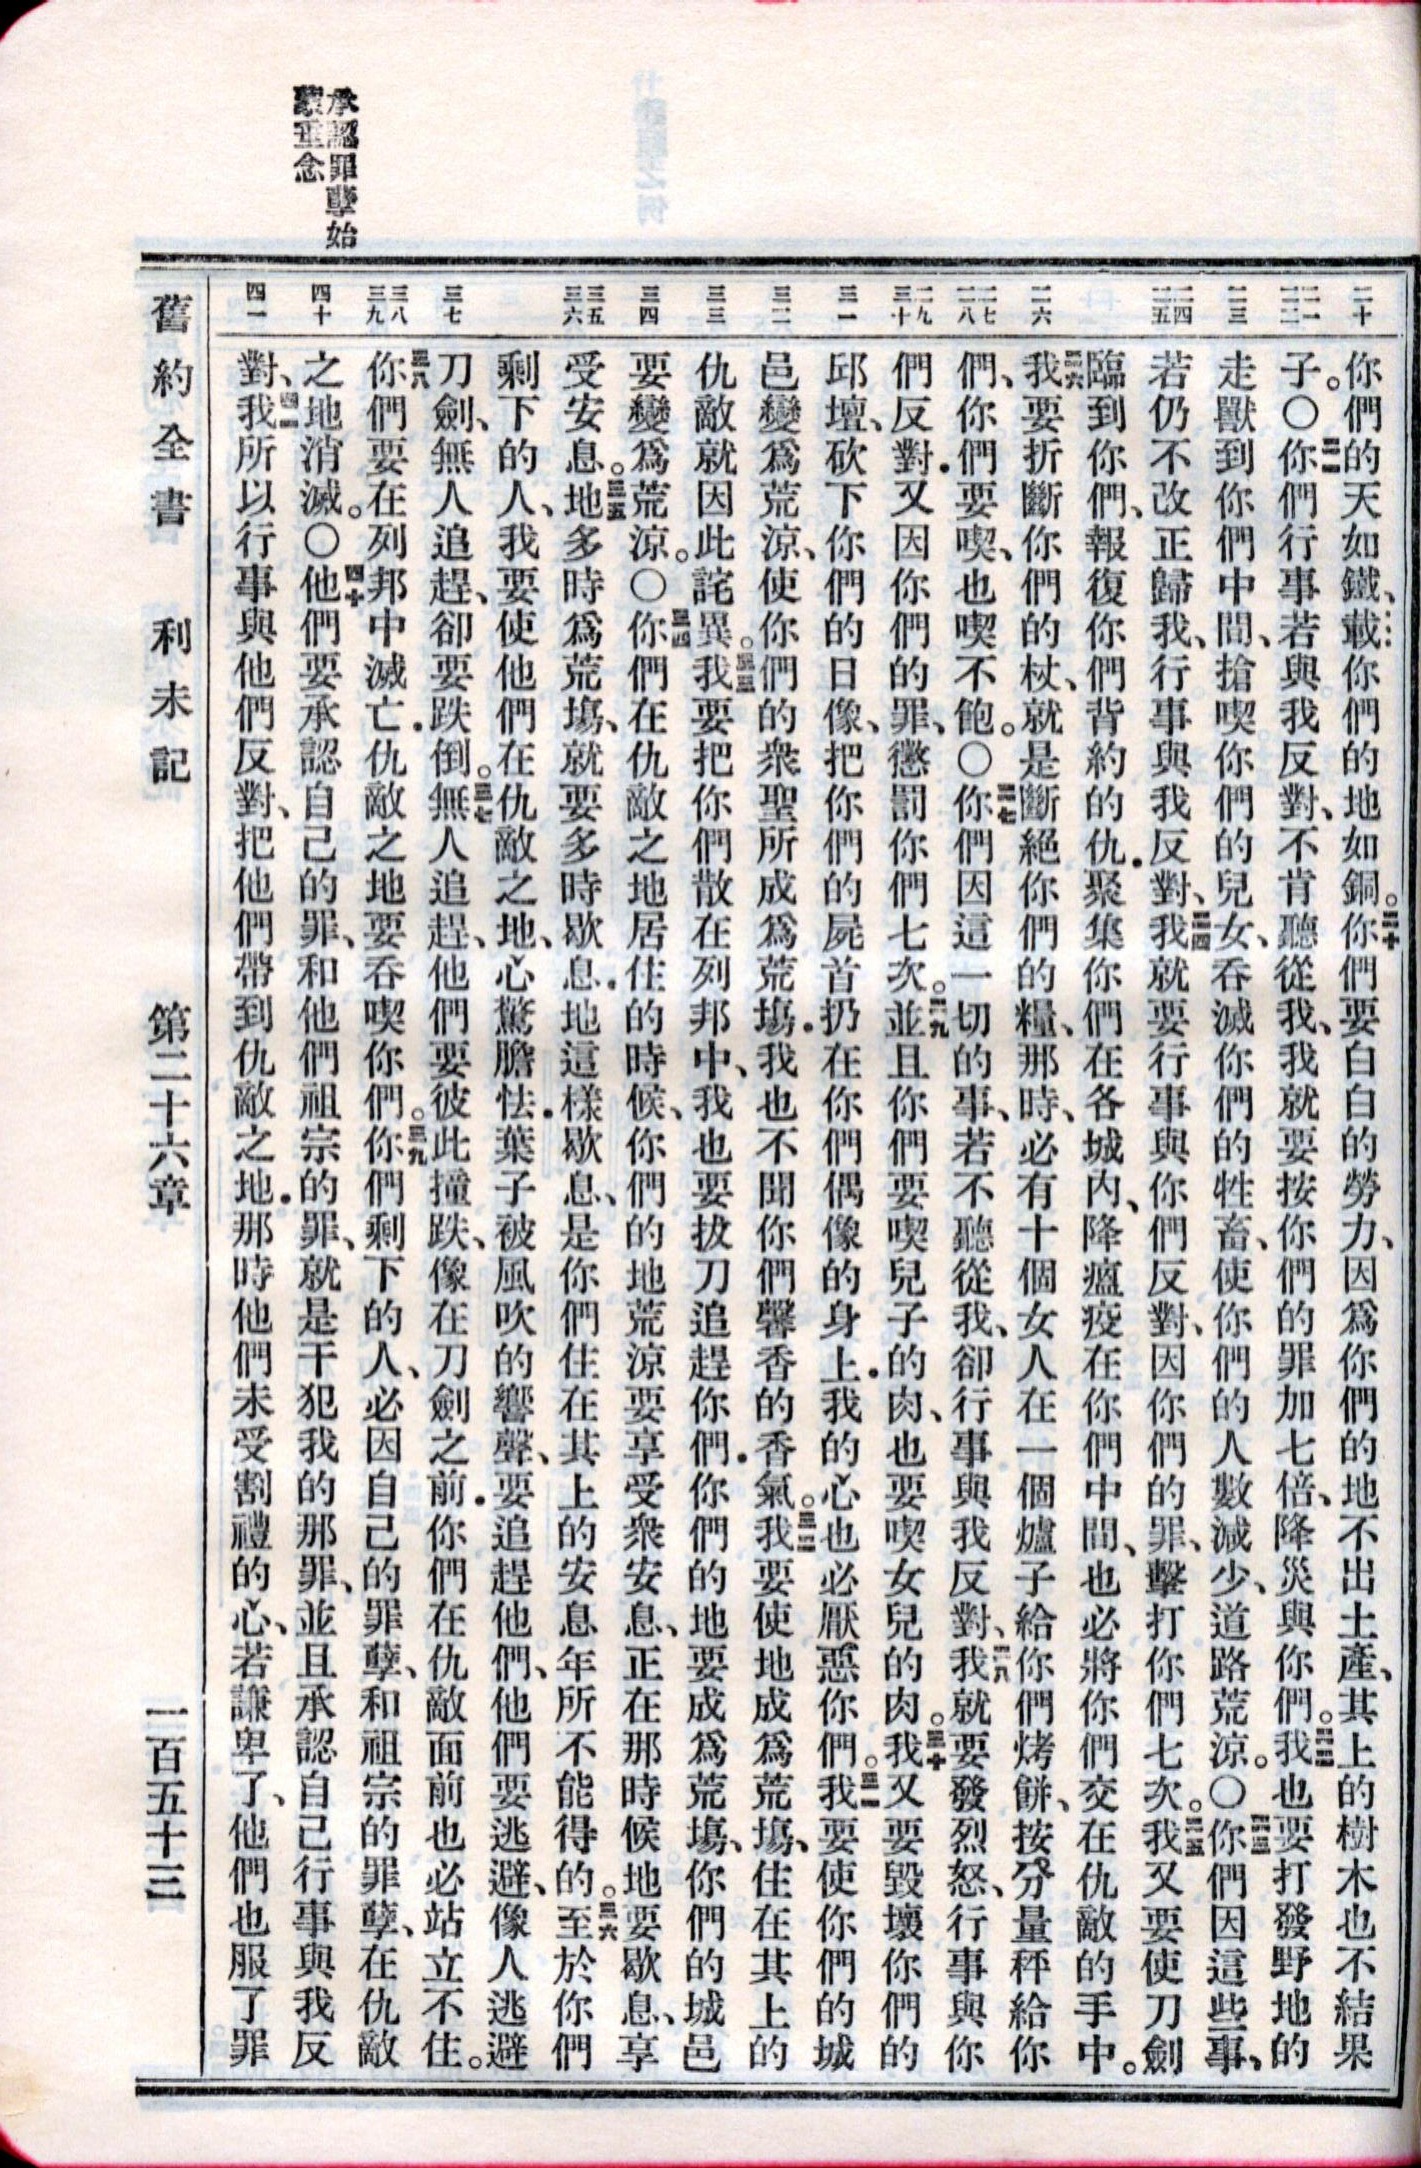 承認罪孽始
蒙重念
二十
你們的天如鐵、載你們的地如銅。二十你們要白白的勞力、因爲你們的地不出土產、其上的樹木也不結果
二一 二二
子。〇二一你們行事若與我反對、不肯聽從我、我就要按你們的罪加七倍、降災與你們。二二我也要打發野地的
二三
走獸到你們中間、搶喫你們的兒女、吞滅你們的牲畜、使你們的人數減少、道路荒涼。〇二三你們因這些事、
二四 二五
若仍不改正歸我、行事與我反對、二四我就要行事與你們反對、因你們的罪、擊打你們七次。二五我又要使刀劍
臨到你們、報復你們背約的仇．聚集你們在各城內、降瘟疫在你們中間、也必將你們交在仇敵的手中。
二六
二六我要折斷你們的杖、就是斷絕你們的糧、那時、必有十個女人在一個爐子給你們烤餅、按分量秤給你
二七 二八
們、你們要喫、也喫不飽。〇二七你們因這一切的事、若不聽從我、卻行事與我反對、二八我就要發烈怒、行事與你
二九 三十
們反對．又因你們的罪、懲罰你們七次。二九並且你們要喫兒子的肉、也要喫女兒的肉。三十我又要毀壞你們的
三一
邱壇、砍下你們的日像、把你們的屍首扔在你們偶像的身上．我的心也必厭惡你們。三一我要使你們的城
三二
邑變爲荒涼、使你們的衆聖所成爲荒塲．我也不聞你們馨香的香氣。三二我要使地成爲荒塲、住在其上的
三三
仇敵就因此詫異。三三我要把你們散在列邦中、我也要拔刀追趕你們．你們的地要成爲荒塲、你們的城邑
三四
要變爲荒涼。〇三四你們在仇敵之地居住的時候、你們的地荒涼要享受衆安息、正在那時候地要歇息、享
三五 三六
受安息。三五地多時爲荒塲、就要多時歇息．地這樣歇息、是你們住在其上的安息年所不能得的。三六至於你們
剩下的人、我要使他們在仇敵之地、心驚膽怯．葉子被風吹的響聲、要追趕他們、他們要逃避、像人逃避
三七
刀劍、無人追趕、卻要跌倒。三七無人追趕、他們要彼此撞跌、像在刀劍之前．你們在仇敵面前也必站立不住。
三八 三九
三八你們要在列邦中滅亡．仇敵之地要吞喫你們。三九你們剩下的人、必因自己的罪孽、和祖宗的罪孽、在仇敵
四十
之地消滅。〇四十他們要承認自己的罪、和他們祖宗的罪、就是干犯我的那罪、並且承認自己行事與我反
四一
對、四一我所以行事與他們反對、把他們帶到仇敵之地．那時他們未受割禮的心、若謙卑了、他們也服了罪
舊約全書 利未記 第二十六章 一百五十三